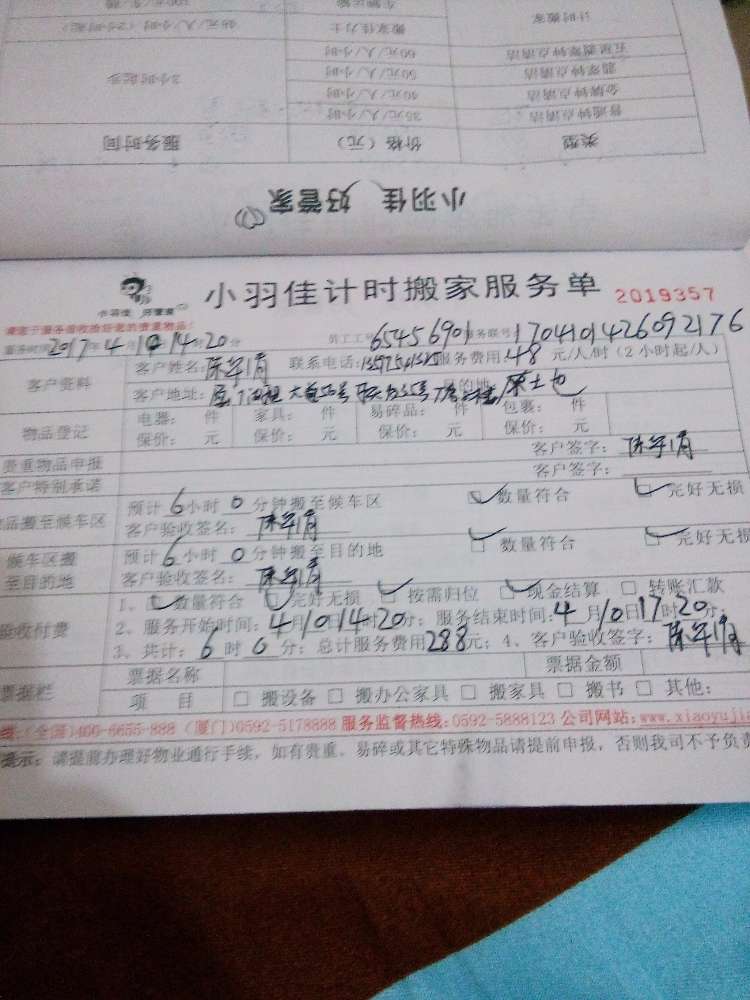 小羽佳 好管家
类型 价格（元） 服务时间
普通钟点清洁 35元/人/小时
金牌钟点清洁 40元/人/小时
翡翠钟点清洁 50元/人/小时
五星翡翠钟点清洁 60元/人/小时
3小时起步
计时搬家 搬家佳力士
小羽佳 好管家
小羽佳计时搬家服务单 2019357
服务时间2017年4月10 14时20分 员工工号 65456901 服务联号: 1704101426092176
客户资料
客户姓名: 联系电话: 服务费用48元/人/时（2小时起/人）
客户地址: 目的地
物品登记
电器: 件 家具: 件 易碎品: 件 包裹: 件
保价: 元 保价: 元 保价: 元 保价: 元
贵重物品申报 客户签字:
客户特别承诺 客户签字:
品搬至候车区 预计6小时0分钟搬至候车区 数量符合 完好无损
客户验收签名:
候车区搬至目的地 预计6小时0分钟搬至目的地 数量符合 完好无损
客户验收签名:
验收付费
1、数量符合 完好无损 按需归位 现金结算 转账汇款
2、服务开始时间: 4月10 14时20分; 服务结束时间: 4月10 17时20分;
3、共计: 6时0分; 总计服务费用288元; 4、客户验收签字:
票据栏 票据名称 票据金额
项 目 搬设备 搬办公家具 搬家具 搬书 其他:
线:(全国)400-6655-888 (厦门)0592-5178888 服务监督热线:0592-5888123 公司网站:www.xiaoyuji
提示: 请提前办理好物业通行手续，如有贵重、易碎或其它特殊物品请提前申报，否则我司不予负责